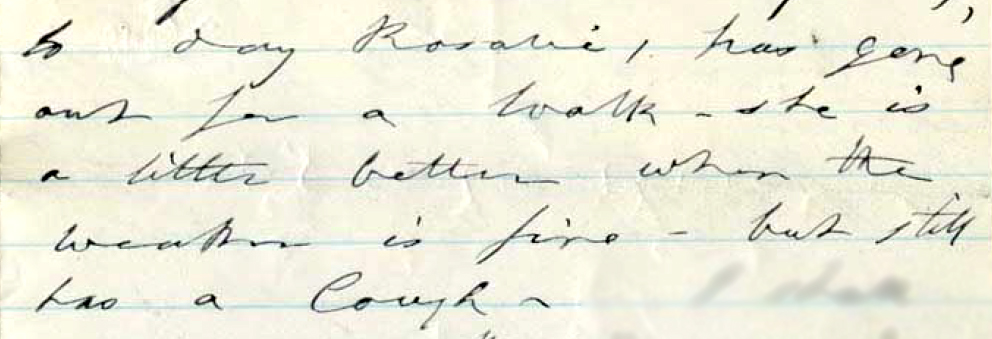 to day Rosalie, has gone
out for a walk - she is
a little better when the
weather is fine - but still
has a Cough -